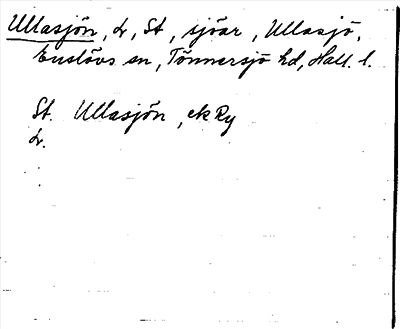 Ullasjön, L, St, sjöar, Ullasjö,
Enslövs sn, Tönnersjö hd, Hall. l.
St. Ullasjön, ekRy
L.